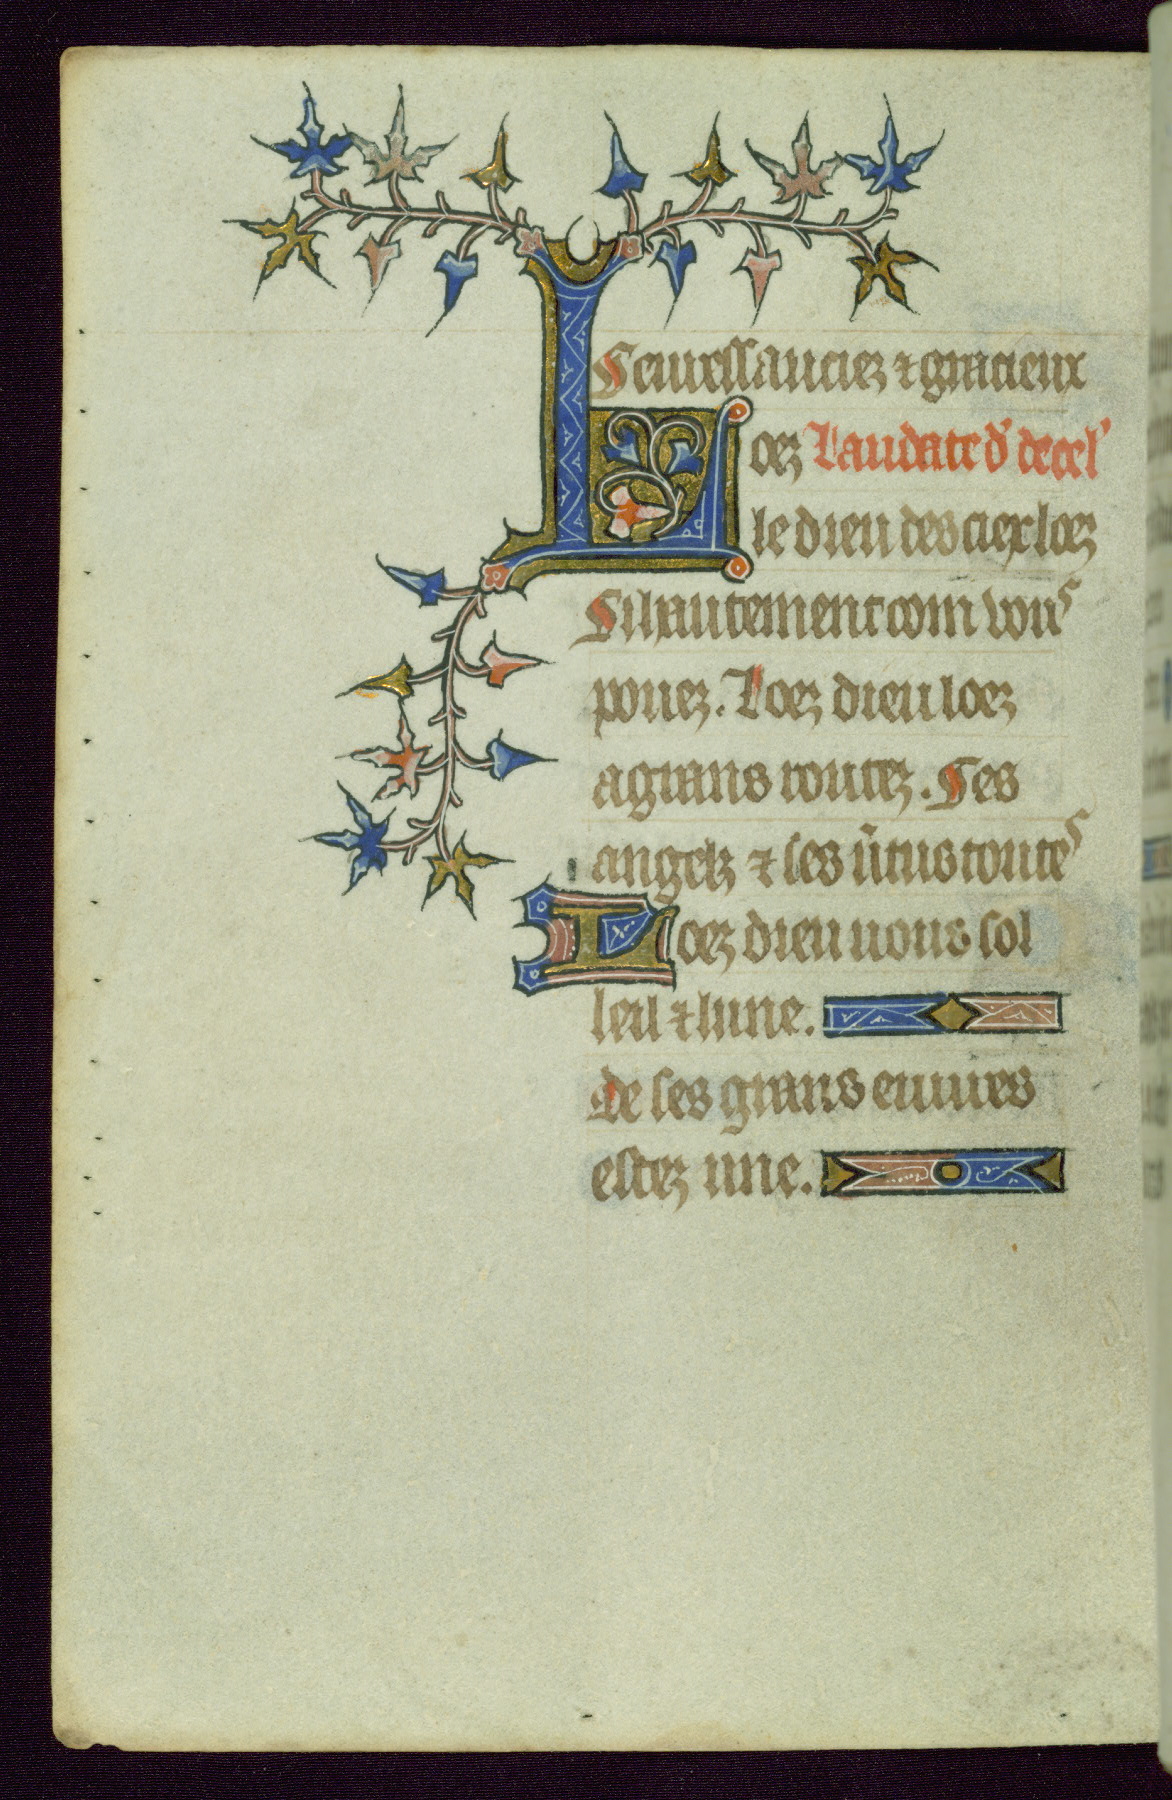 Seuressauciez ⁊ gracieux
Loez Laudate d̾ de cel̾
le dieu des ciex loez
Si hautement com vous
pouez. Loez dieu loez
a grans routez. Ses
angelz ⁊ ses v̾tus toutes
Loez dieu vous sol
leil ⁊ lune.
de ses grans euures
estez une.